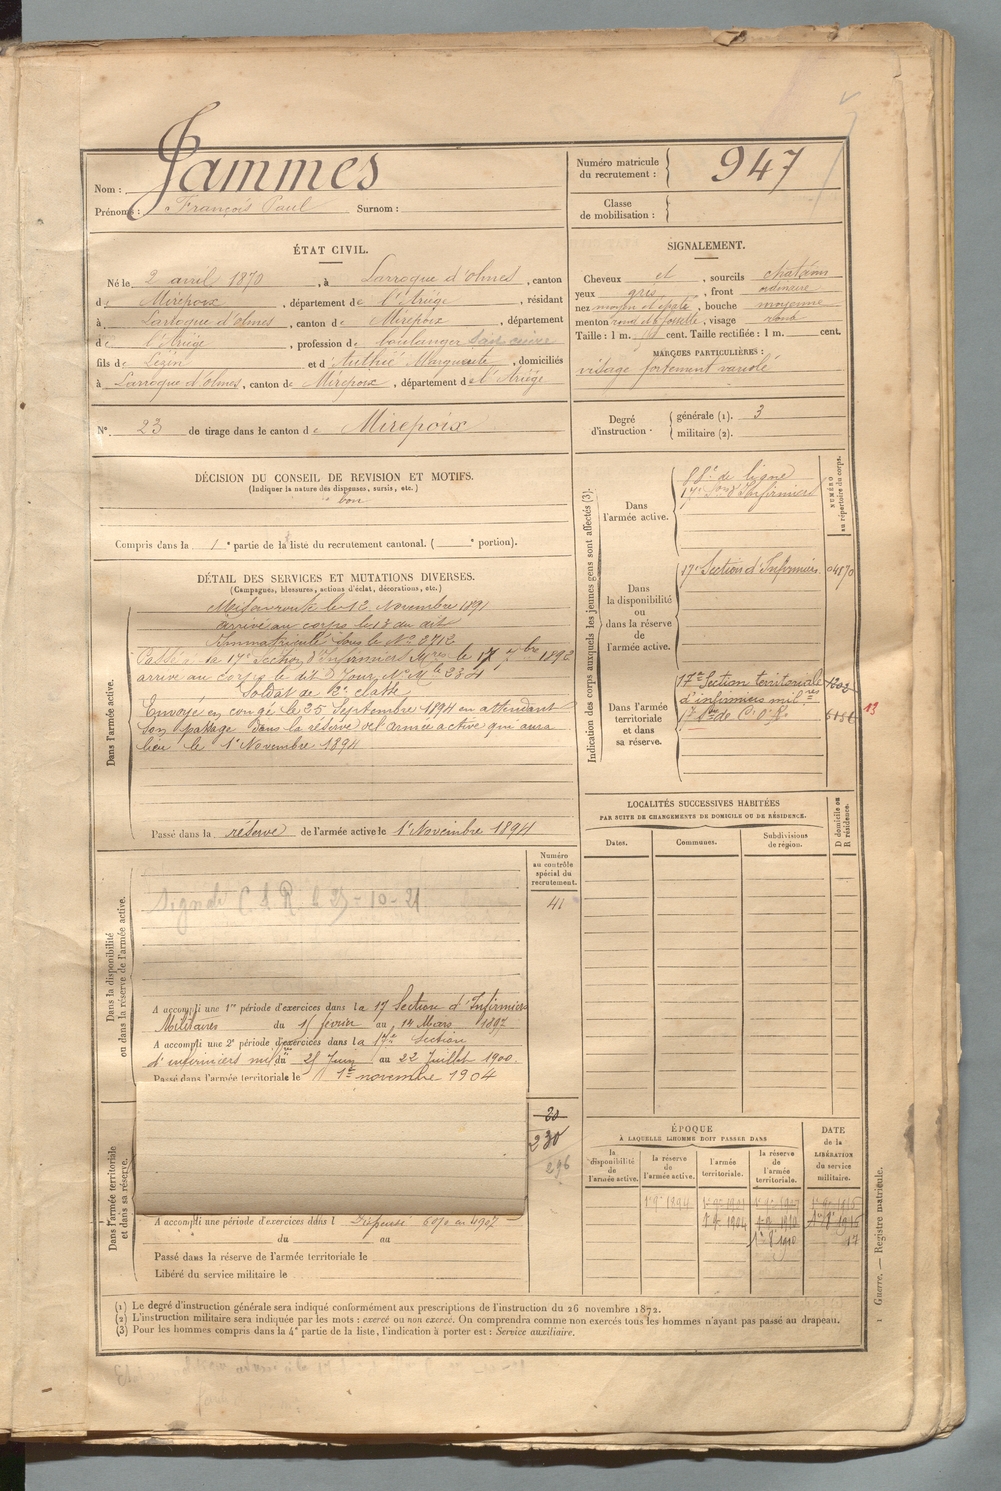 Nom : Jammes
Prénoms : François Paul Surnom :
Numéro matricule du recrutement : 947
Classe de mobilisation :
ÉTAT CIVIL.
Né le 2 avril 1870, à Larroque d'olmes, canton
de Mirepoix, département de l'Ariège, résidant
à Larroque d'olmes, canton de Mirepoix, département
de l'Ariège, profession de boulanger
fils de Lézin et d'Authié Marguerite, domiciliés
à Larroque d'olmes, canton de Mirepoix, département de l'Ariège
N° 23 de tirage dans le canton de Mirepoix
SIGNALEMENT.
Cheveux et, sourcils châtains
yeux gris, front ordinaire
nez moyen et épaté, bouche moyenne
menton rond à fossette, visage rond
Taille : 1 m. cent. Taille rectifiée : 1 m. cent.
MARQUES PARTICULIÈRES :
visage fortement variolé
Degré d'instruction
générale (1). 3
militaire (2).
DÉCISION DU CONSEIL DE REVISION ET MOTIFS.
(Indiquer la nature des dispenses, sursis, etc.)
bon
Compris dans la 1e partie de la liste du recrutement cantonal. ( e portion).
DÉTAIL DES SERVICES ET MUTATIONS DIVERSES.
(Campagnes, blessures, actions d'éclat, décorations, etc.)
Dans l'armée active.
Mis en route le 12 Novembre 1891
arrivé au corps le 13 du dit
Immatriculé sous le N° 2712
Passé à la 17e Section d'Infirmiers Mres le 17 7bre 1892
arrivé au corps le dit Jour, N° Mle 2384
Soldat de 2e classe
Envoyé en congé le 25 Septembre 1894 en attendant
son passage dans la réserve de l'armée active qui aura
lieu le 1er Novembre 1894
Passé dans la réserve de l'armée active le 1er Novembre 1894
Indication des corps auxquels les jeunes gens sont affectés (3).
NUMÉRO au répertoire du corps.
Dans l'armée active.
de ligne
17e Son d'Infirmiers
Dans la disponibilité ou dans la réserve de l'armée active.
17e Section d'Infirmiers 04870
Dans l'armée territoriale et dans sa réserve.
17e Section territoriale
d'infirmiers mil.res
13
LOCALITÉS SUCCESSIVES HABITÉES
PAR SUITE DE CHANGEMENTS DE DOMICILE OU DE RÉSIDENCE.
Dates. Communes. Subdivisions de région. D domicile ou R résidence.
Dans la disponibilité ou dans la réserve de l'armée active.
Numéro au contrôle spécial du recrutement.
41
Signalé C.S.R. le 25-10-21
A accompli une 1re période d'exercices dans la 17 Section d'Infirmiers
Militaires du 15 février au 14 Mars 1897
A accompli une 2e période d'exercices dans la 17e Section
d'infirmiers mil.res du 25 Juin au 22 Juillet 1900.
Passé dans l'armée territoriale le 1er novembre 1904
Dans l'armée territoriale et dans sa réserve.
20
230
296
A accompli une période d'exercices dans l Dispensé en 1907
du au
Passé dans la réserve de l'armée territoriale le
Libéré du service militaire le
ÉPOQUE
À LAQUELLE L'HOMME DOIT PASSER DANS
la disponibilité de l'armée active. la réserve de l'armée active. l'armée territoriale. la réserve de l'armée territoriale.
DATE de la LIBÉRATION du service militaire.
(1) Le degré d'instruction générale sera indiqué conformément aux prescriptions de l'instruction du 26 novembre 1872.
(2) L'instruction militaire sera indiquée par les mots : exercé ou non exercé. On comprendra comme non exercés tous les hommes n'ayant pas passé au drapeau.
(3) Pour les hommes compris dans la 4e partie de la liste, l'indication à porter est : Service auxiliaire.
Guerre. — Registre matricule.